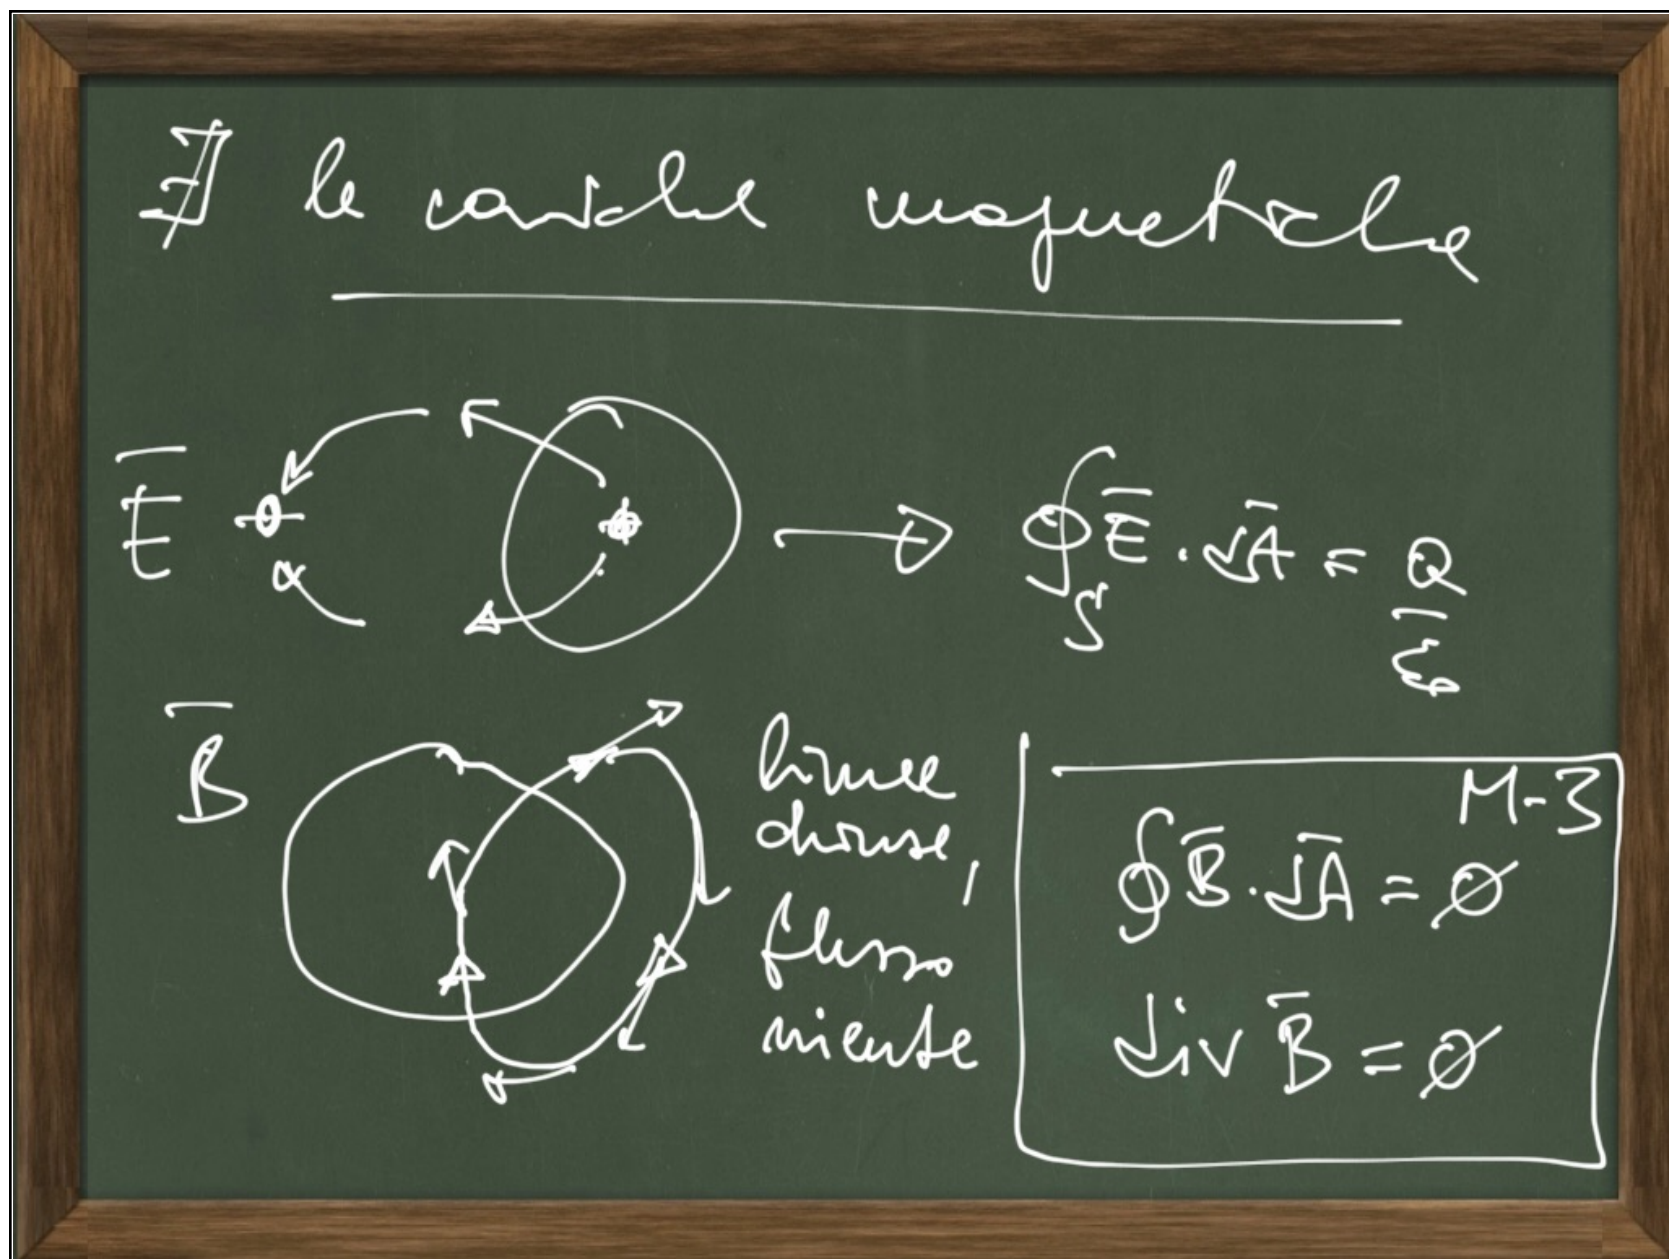 ∄ le cariche magnetiche
Ē
∮_S Ē · dĀ = Q/ε₀
B̄
linee
chiuse,
flusso
niente
M-3
∮ B̄ · dĀ = ∅
div B̄ = ∅